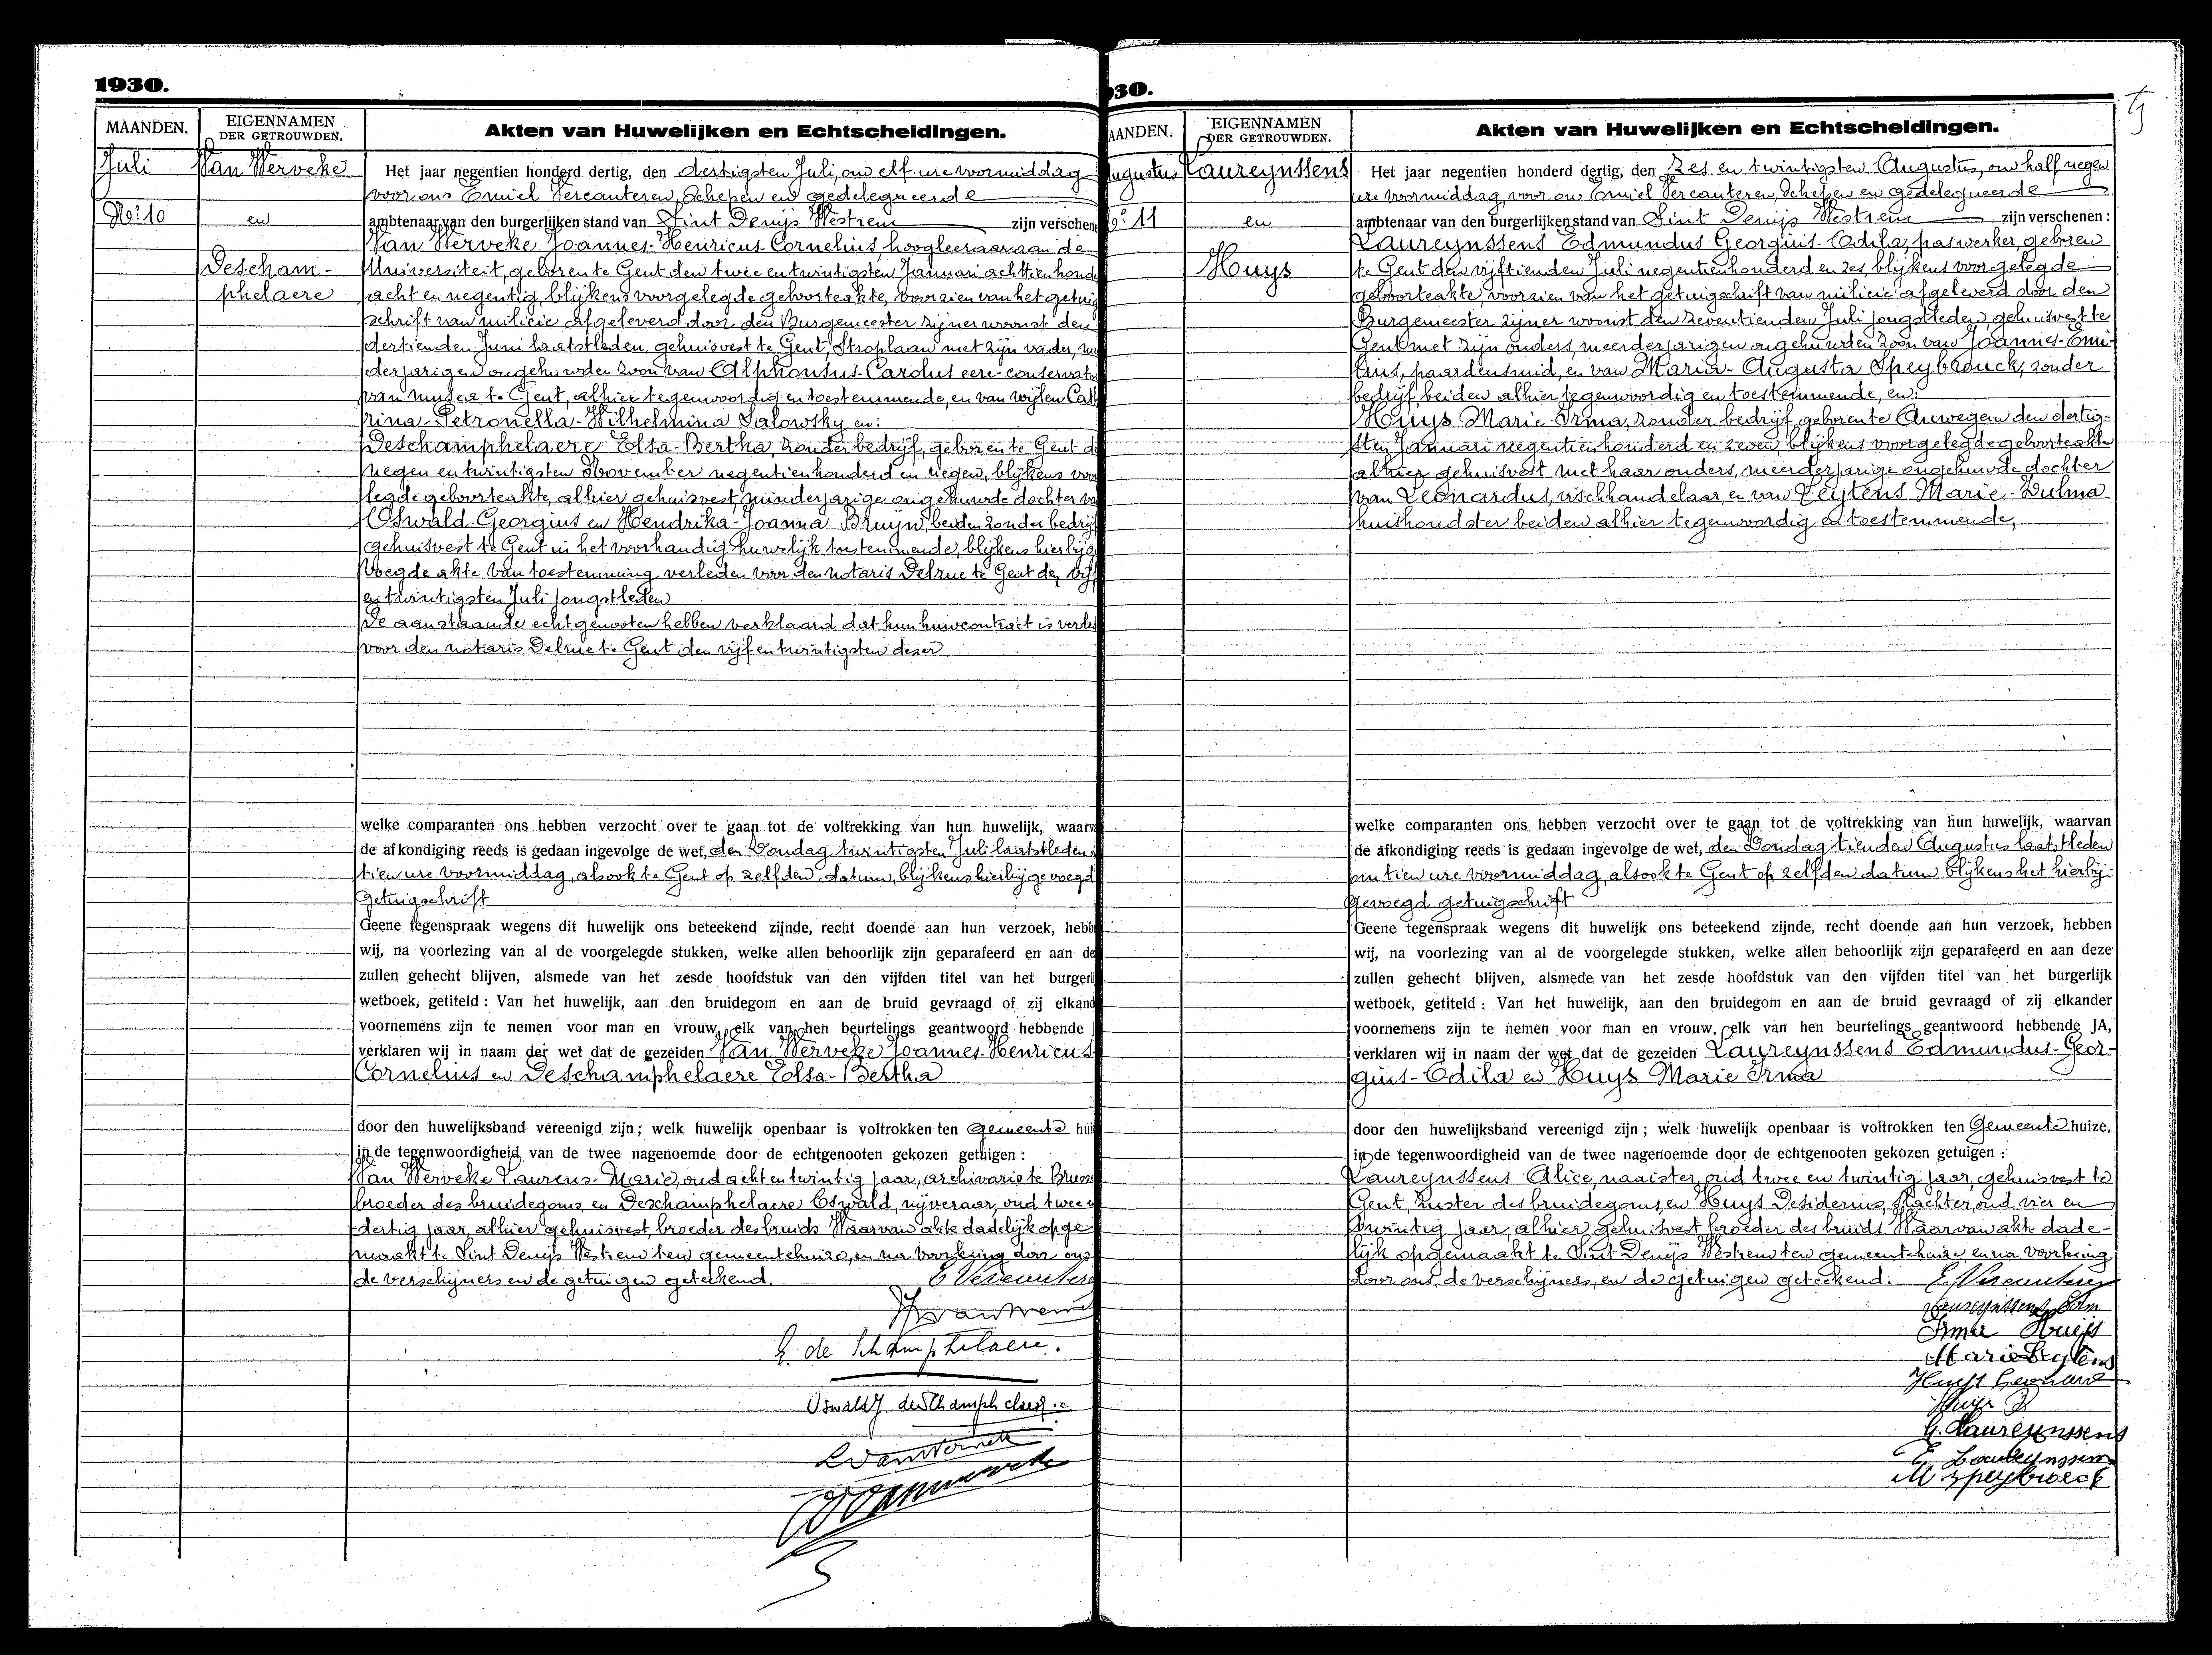 1930.
MAANDEN.
EIGENNAMEN
DER GETROUWDEN.
Akten van Huwelijken en Echtscheidingen.
Juli
No: 10
Van Werveke
en
Descham-
phelaere
Het jaar negentien honderd dertig, den dertigsten Juli, om elf ure voormiddag
voor ons Emiel Vercauteren, Schepen en gedelegueerde
ambtenaar van den burgerlijken stand van Sint Denijs Westrem zijn verschene
Van Werveke Joannes-Henricus-Cornelius, hoogleeraar aan de
Universiteit, geboren te Gent den twee en twintigsten Januari achttien honde
acht en negentig, blijkens voorgelegde geboorteakte, voorzien van het getuig
schrift van milicie afgeleverd door den Burgemeester zijner woonst den
dertienden Juni laatstleden, gehuisvest te Gent, Stroplaan met zijn vader, me
derjarigen ongehuwden zoon van Alphonsus-Carolus eere-conservato
van musea te Gent, alhier tegenwoordig en toestemmende, en van wijlen Cath
rina-Petronella-Wilhelmina Salowsky en:
Deschamphelaere Elsa-Bertha, zonder bedrijf, geboren te Gent d
negen en twintigsten November negentienhonderd en negen, blijkens voor
legde geboorteakte, alhier gehuisvest, minderjarige ongehuwde dochter va
Oswald-Georgius en Hendrika-Joanna Bruyn, beiden zonder bedrijf
gehuisvest te Gent in het voorhandig huwelijk toestemmende, blijkens hierbijge
voegde akte van toestemming verleden voor den notaris Delrue te Gent den vijf
en twintigsten Juli jongstleden
De aanstaande echtgenooten hebben verklaard dat hun huwcontract is verle
voor den notaris Delrue te Gent den vijf en twintigsten dezer
welke comparanten ons hebben verzocht over te gaan tot de voltrekking van hun huwelijk, waarv
de afkondiging reeds is gedaan ingevolge de wet, den Zondag twintigsten Juli laatstleden
tien ure voormiddag, alsook te Gent op zelfden datum, blijkens hierbijgevoegd
getuigschrift
Geene tegenspraak wegens dit huwelijk ons beteekend zijnde, recht doende aan hun verzoek, hebbe
wij, na voorlezing van al de voorgelegde stukken, welke allen behoorlijk zijn geparafeerd en aan de
zullen gehecht blijven, alsmede van het zesde hoofdstuk van den vijfden titel van het burgerl
wetboek, getiteld : Van het huwelijk, aan den bruidegom en aan de bruid gevraagd of zij elkand
voornemens zijn te nemen voor man en vrouw, elk van hen beurtelings geantwoord hebbende
verklaren wij in naam der wet dat de gezeiden Van Werveke Joannes-Henricus
Cornelius en Deschamphelaere Elsa-Bertha
door den huwelijksband vereenigd zijn; welk huwelijk openbaar is voltrokken ten Gemeente hui
in de tegenwoordigheid van de twee nagenoemde door de echtgenooten gekozen getuigen :
Van Werveke Laurens-Marie, oud acht en twintig jaar, archivaris te Brusse
broeder des bruidegoms, en Deschamphelaere Oswald, nijveraar, oud twee e
dertig jaar, alhier gehuisvest, broeder des bruids. Waarvan akte dadelijk opge
maakt te Sint Denijs Westrem ten gemeentehuize, en na voorlezing door ons
de verschijners en de getuigen geteekend. E Vercauteren
E. de Schamphelaere.
Oswald J. deschamphelaere
L Van Werveke
30.
AANDEN.
EIGENNAMEN
DER GETROUWDEN.
Akten van Huwelijken en Echtscheidingen.
ugustus
o: 11
Laureynssens
en
Huys
Het jaar negentien honderd dertig, den zes en twintigsten Augustus, om half negen
ure voormiddag, voor ons Emiel Vercauteren, Schepen en gedelegueerde
ambtenaar van den burgerlijken stand van Sint Denijs Westrem zijn verschenen :
Laureynssens Edmundus Georgius-Odila, paswerker, geboren
te Gent den vijftienden Juli negentienhonderd en zes, blijkens voorgelegde
geboorteakte, voorzien van het getuigschrift van milicie afgeleverd door den
Burgemeester zijner woonst den zeventienden Juli jongstleden, gehuisvest te
Gent met zijn ouders, meerderjarigen ongehuwden zoon van Joannes-Emi-
lius, paardensmid, en van Maria-Augusta Speybrouck, zonder
bedrijf, beiden alhier tegenwoordig en toestemmende, en:
Huys Marie-Irma, zonder bedrijf, geboren te Auwegen den dertig-
sten Januari negentien honderd en zeven, blijkens voorgelegde geboorteakte
alhier gehuisvest met haar ouders, meerderjarige ongehuwde dochter
van Leonardus, vischhandelaar, en van Zeijtens Marie-Zulma
huishoudster beiden alhier tegenwoordig en toestemmende,
welke comparanten ons hebben verzocht over te gaan tot de voltrekking van hun huwelijk, waarvan
de afkondiging reeds is gedaan ingevolge de wet, den Zondag tienden Augustus laatstleden
om tien ure voormiddag, alsook te Gent op zelfden datum blijkens het hierbij-
gevoegd getuigschrift
Geene tegenspraak wegens dit huwelijk ons beteekend zijnde, recht doende aan hun verzoek, hebben
wij, na voorlezing van al de voorgelegde stukken, welke allen behoorlijk zijn geparafeerd en aan deze
zullen gehecht blijven, alsmede van het zesde hoofdstuk van den vijfden titel van het burgerlijk
wetboek, getiteld : Van het huwelijk, aan den bruidegom en aan de bruid gevraagd of zij elkander
voornemens zijn te nemen voor man en vrouw, elk van hen beurtelings geantwoord hebbende JA,
verklaren wij in naam der wet dat de gezeiden Laureynssens Edmundus-Geor-
gius-Odila en Huys Marie Irma
door den huwelijksband vereenigd zijn ; welk huwelijk openbaar is voltrokken ten Gemeente huize,
in de tegenwoordigheid van de twee nagenoemde door de echtgenooten gekozen getuigen :
Laureynssens Alice, naaister, oud twee en twintig jaar, gehuisvest te
Gent, zuster des bruidegoms, en Huys Desiderius, slachter, oud vier en
twintig jaar, alhier gehuisvest, broeder des bruids. Waarvan akte dade-
lijk opgemaakt te Sint Denijs Westrem ten gemeentehuize en na voorlezing
door ons, de verschijners, en de getuigen geteekend. E. Vercauteren
Laureynssens Edm
Irma Huijs
Marie Zeytens
Huys Leonard
Huys D
A. Laureynssens
E Laureynssens
M Speybroeck